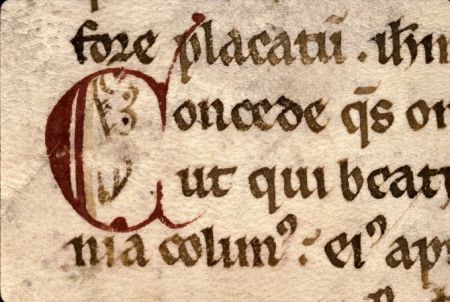 fore placatū .
Concede q̄s
ut qui beat
nia colimꝰ : eiꝰ ap